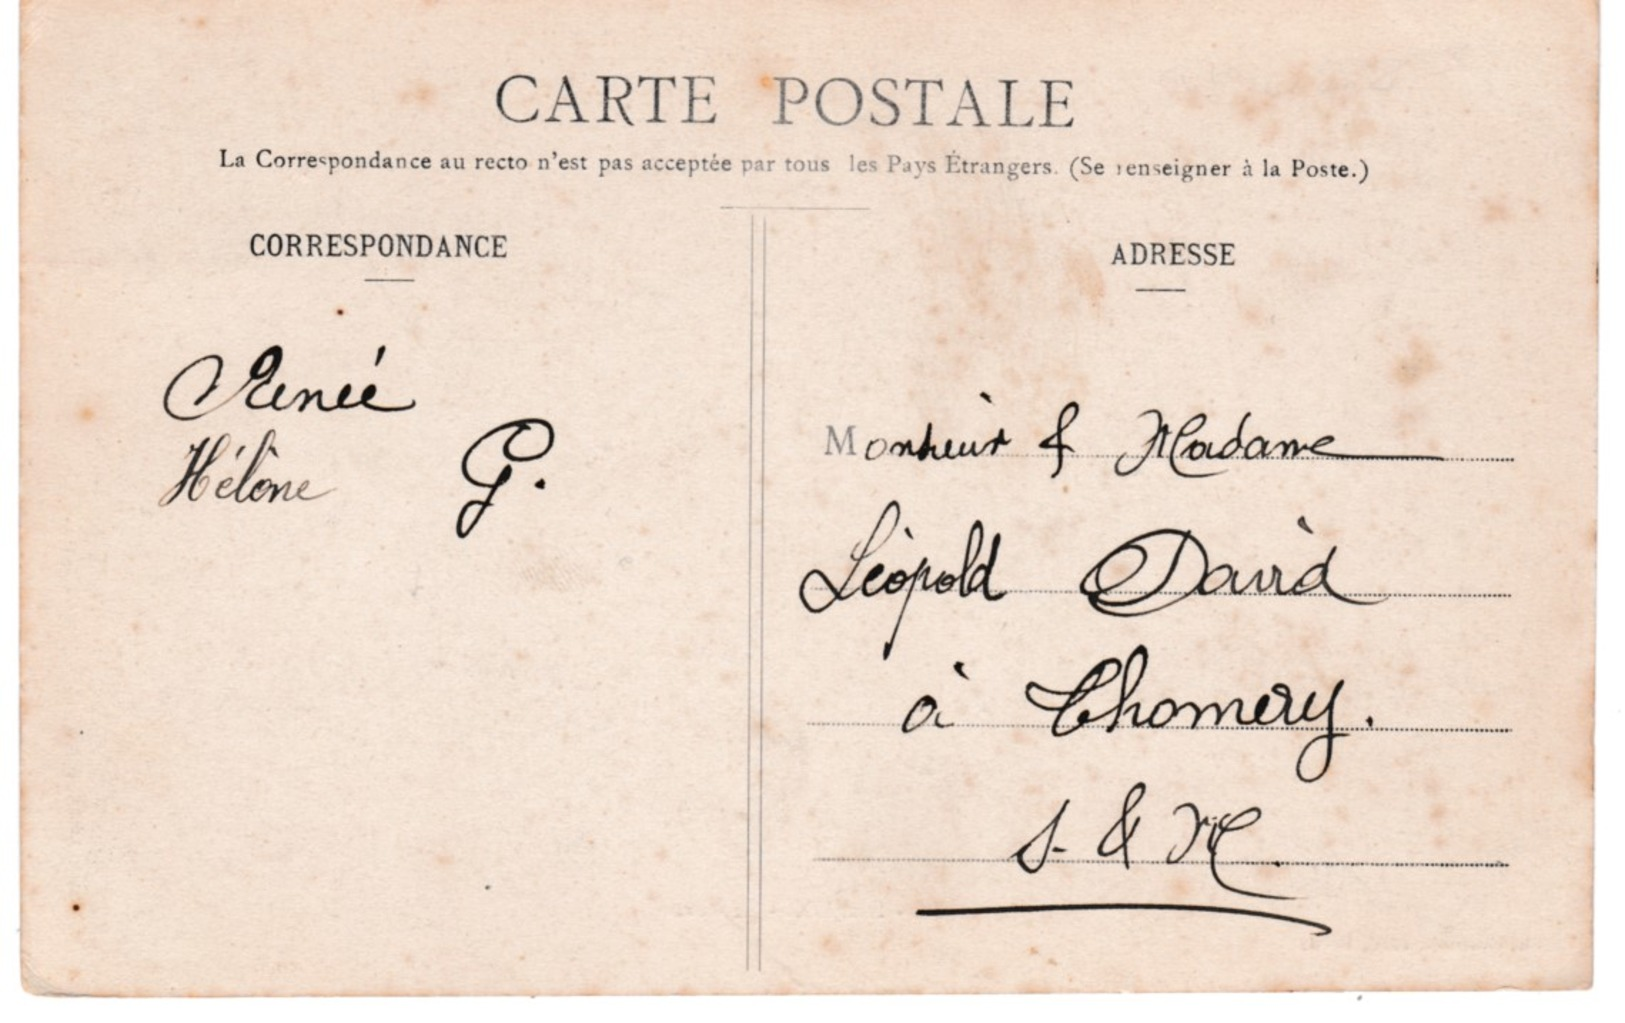 CARTE POSTALE
La Correspondance au recto n'est pas acceptée par tous les Pays Étrangers. (Se renseigner à la Poste.)
CORRESPONDANCE
Renée
Hélène G.
ADRESSE
Monsieur & Madame
Léopold David
à Thomery.
S. & M.